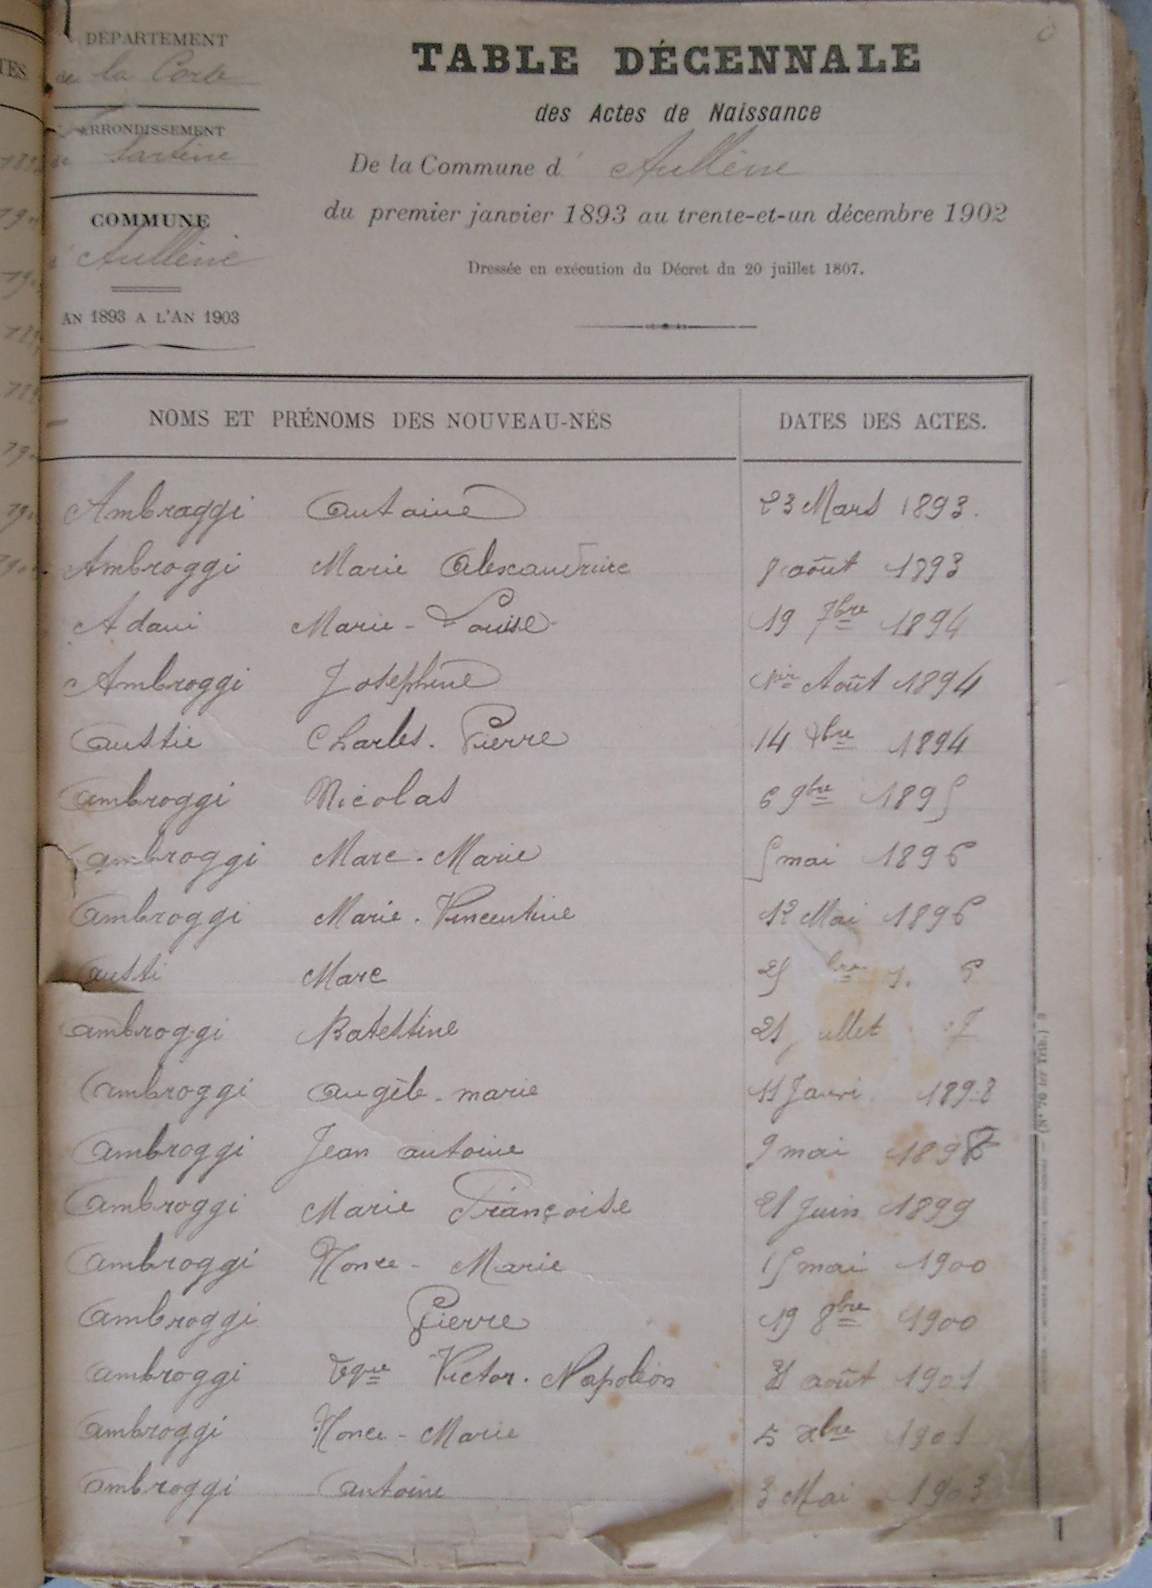 DÉPARTEMENT
de la Corse
ARRONDISSEMENT
de Sartène
COMMUNE
d'Aullène
AN 1893 A L'AN 1903
TABLE DÉCENNALE
des Actes de Naissance
De la Commune d'Aullène
du premier janvier 1893 au trente-et-un décembre 1902
Dressée en exécution du Décret du 20 juillet 1807.
NOMS ET PRÉNOMS DES NOUVEAU-NÉS DATES DES ACTES.
Ambroggi Antoine 23 Mars 1893.
Ambroggi Marie Alexandrine 8 août 1893
Adani Marie-Louise 19 7bre 1894
Ambroggi Joséphine 1er Août 1894
Austie Charles-Pierre 14 1894
Ambroggi Nicolas 6 9bre 1895
Ambroggi Marc-Marie 5 mai 1896
Ambroggi Marie-Vincentine 12 Mai 1896
Austi Marc 25 bre 6
Ambroggi Batestine 21 illet 7
Ambroggi Angèle-marie 11 Janvi 1898
Ambroggi Jean antoine 9 mai 1898
Ambroggi Marie Françoise 21 Juin 1899
Ambroggi Nonce-Marie 15 mai 1900
Ambroggi Pierre 19 8bre 1900
Ambroggi Victor-Napoléon août 1901
Ambroggi Nonce-Marie 5 xbre 1901
Ambroggi Antoine 3 Mai 1903